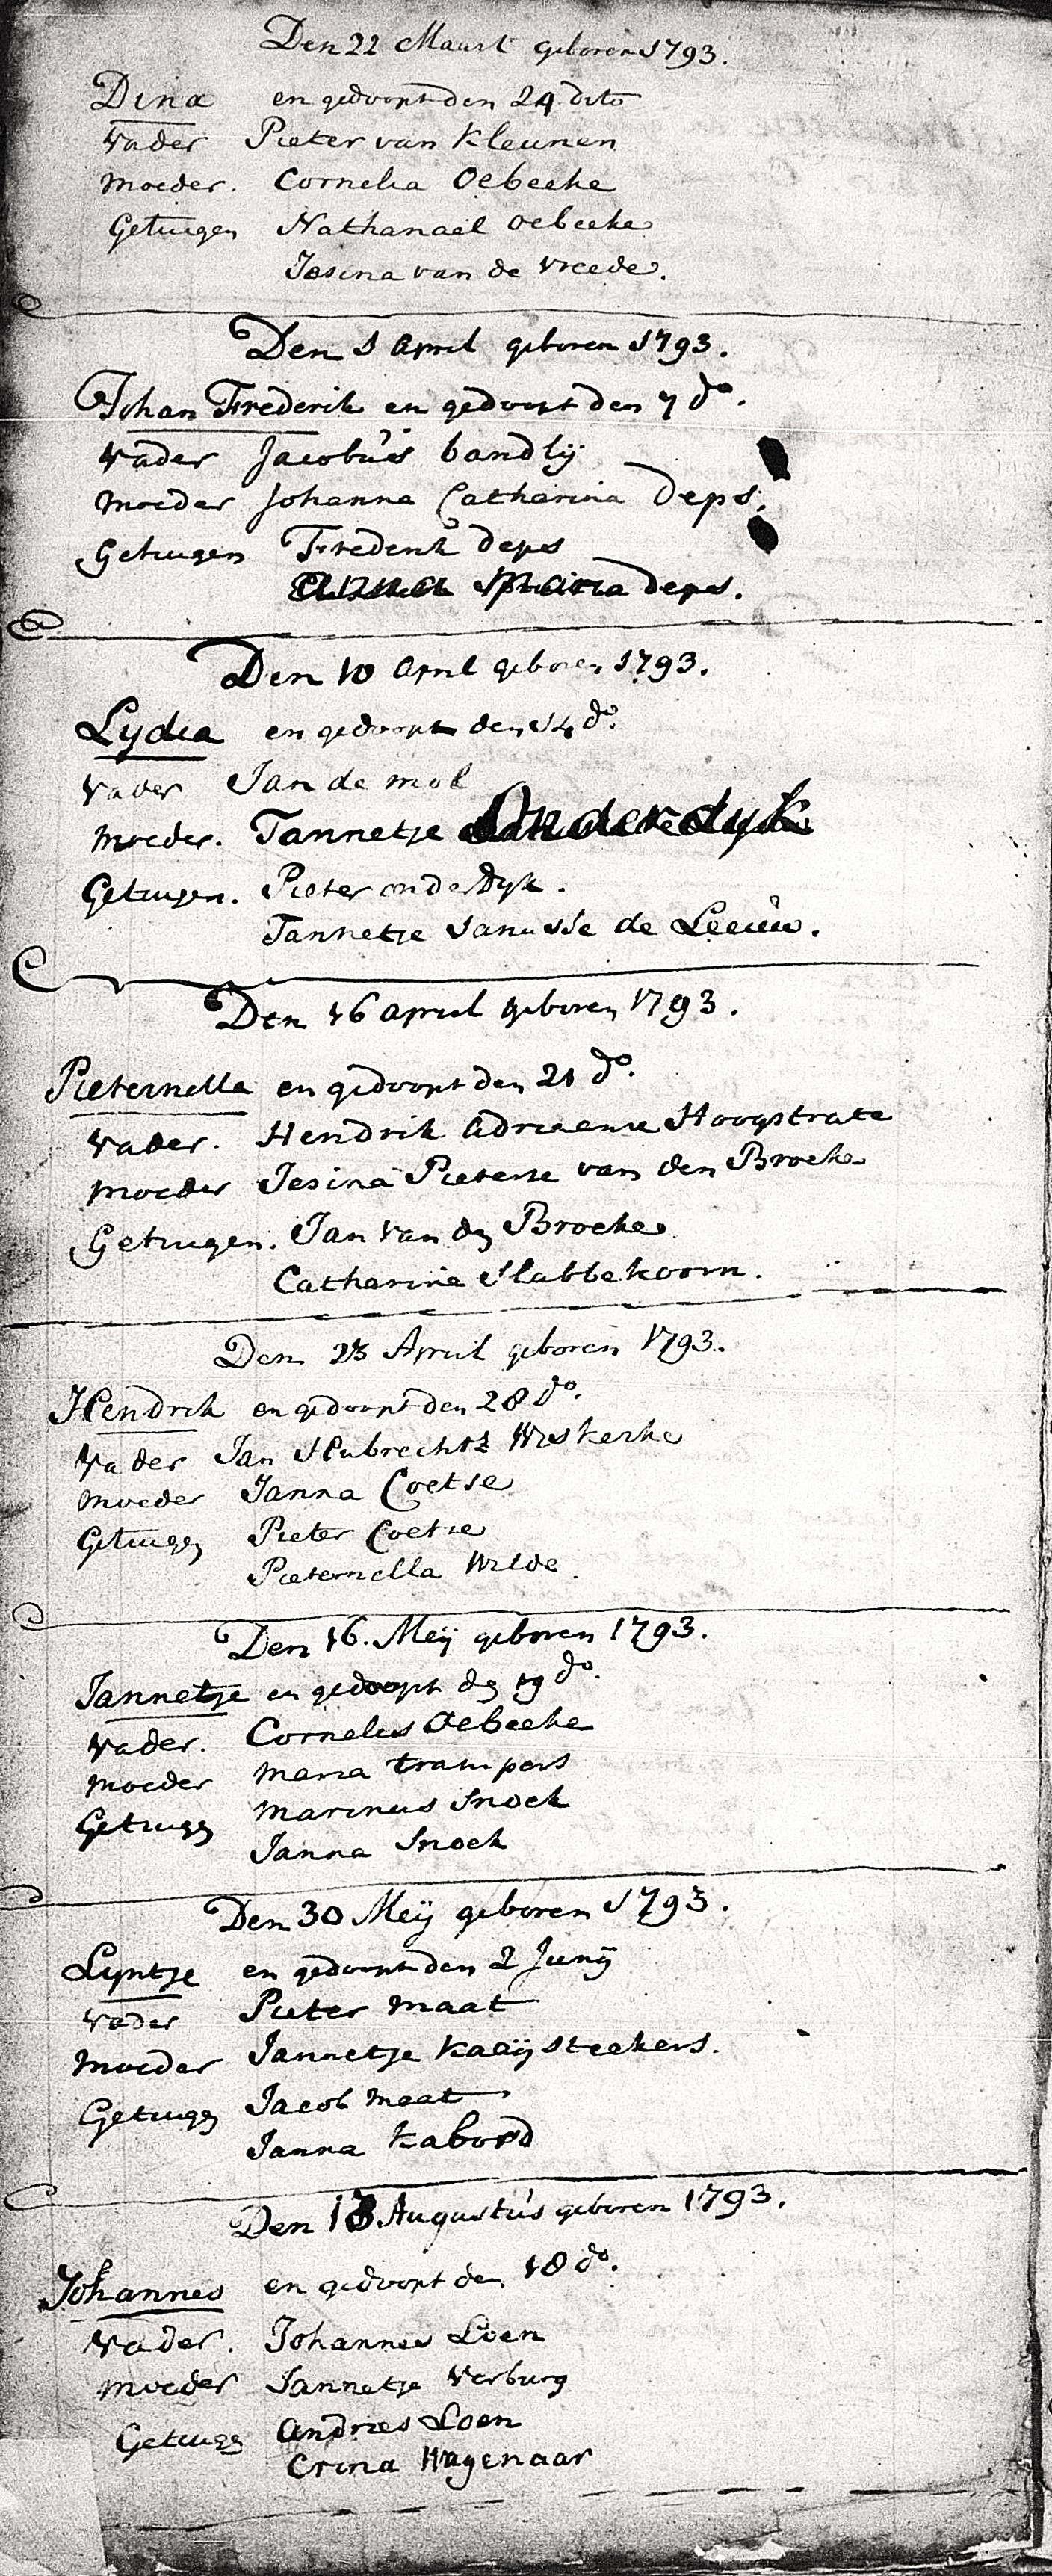 Den 22 Maart geboren 1793.
Dina en gedoopt den 24 dito
Vader Pieter van Kleunen
Moeder. Cornelia Oebeeke
Getuigen Nathanael Oebeeke
Jesina van de Vreede.
Den 1 April geboren 1793.
Johan Frederik en gedoopt den 7 do.
Vader Jacobus bandlij
Moeder Johanna Catharina Deps.
Getuigen Frederik deps
Anna Maria deps.
Den 10 April geboren 1793.
Lydia en gedoopt den 14 do.
Vader Jan de mol
Moeder. Tannetje Onderdyk
Getuigen. Pieter onderdyk.
Tannetje Janusse de Leeuw.
Den 16 April geboren 1793.
Pieternella en gedoopt den 21 do.
Vader. Hendrik Adriaanse Hoogstrate
Moeder Jesina Pieterse van den Broeke
Getuigen. Jan van dn Broeke
Catharina Slabbekoorn.
Den 23 April geboren 1793.
Hendrik en gedoopt den 28 do.
Vader Jan Hubrechtz Wiskerke
Moeder Janna Coetse
Getuigen Pieter Coetse
Pieternella Wilde.
Den 16. Meij geboren 1793.
Jannetje en gedoopt dn 19 do.
Vader. Cornelus Oebeeke
Moeder Maria trampers
Getuign Marinus Snoek
Janna Snoek
Den 30 Meij geboren 1793.
Lyntje en gedoopt den 2 Junij
Vader Pieter maat
Moeder Jannetje Kaaijsteekers.
Getuign Jacob maat
Janna Kabord
Den 13 Augustus geboren 1793.
Johannes en gedoopt den 18 do.
Vader. Johannes Loen
Moeder Jannetje Verburg
Getuign Andries Loen
Crina Hagenaar